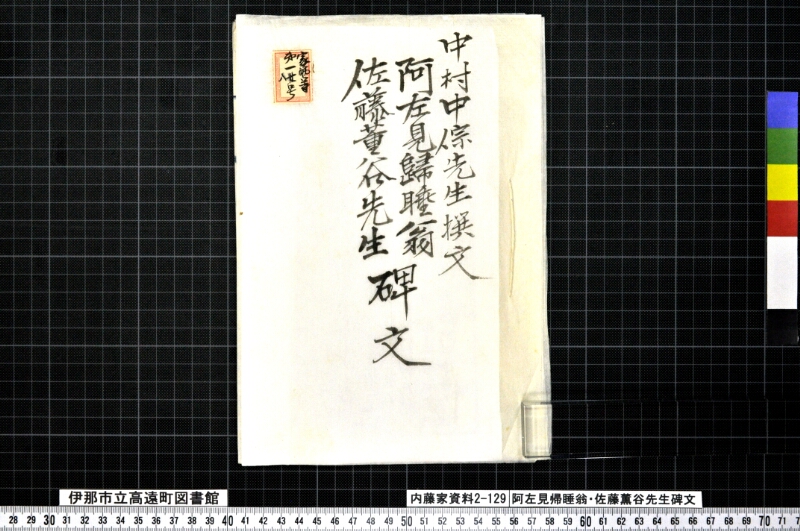 中村中倧先生撰文
阿左見歸睡翁
佐藤董谷先生
碑文
伊那市立高遠町図書館
内藤家資料2-129 阿左見帰睡翁・佐藤薫谷先生碑文
28 29 30 31 32 33 34 35 36 37 38 39 40 41 42 43 44 45 46 47 48 49 50 51 52 53 54 55 56 57 58 59 60 61 62 63 64 65 66 67 68 69 70 71